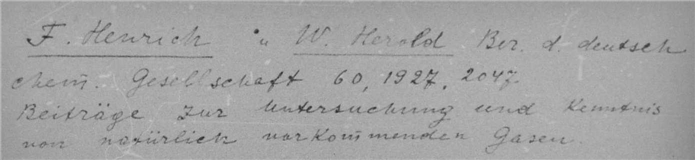 F. Henrich u W. Herold Ber. d. deutsch
chem. Gesellschaft 60, 1927, 2047
Beiträge zur Untersuchung und Kenntnis
von natürlich vorkommenden Gasen.